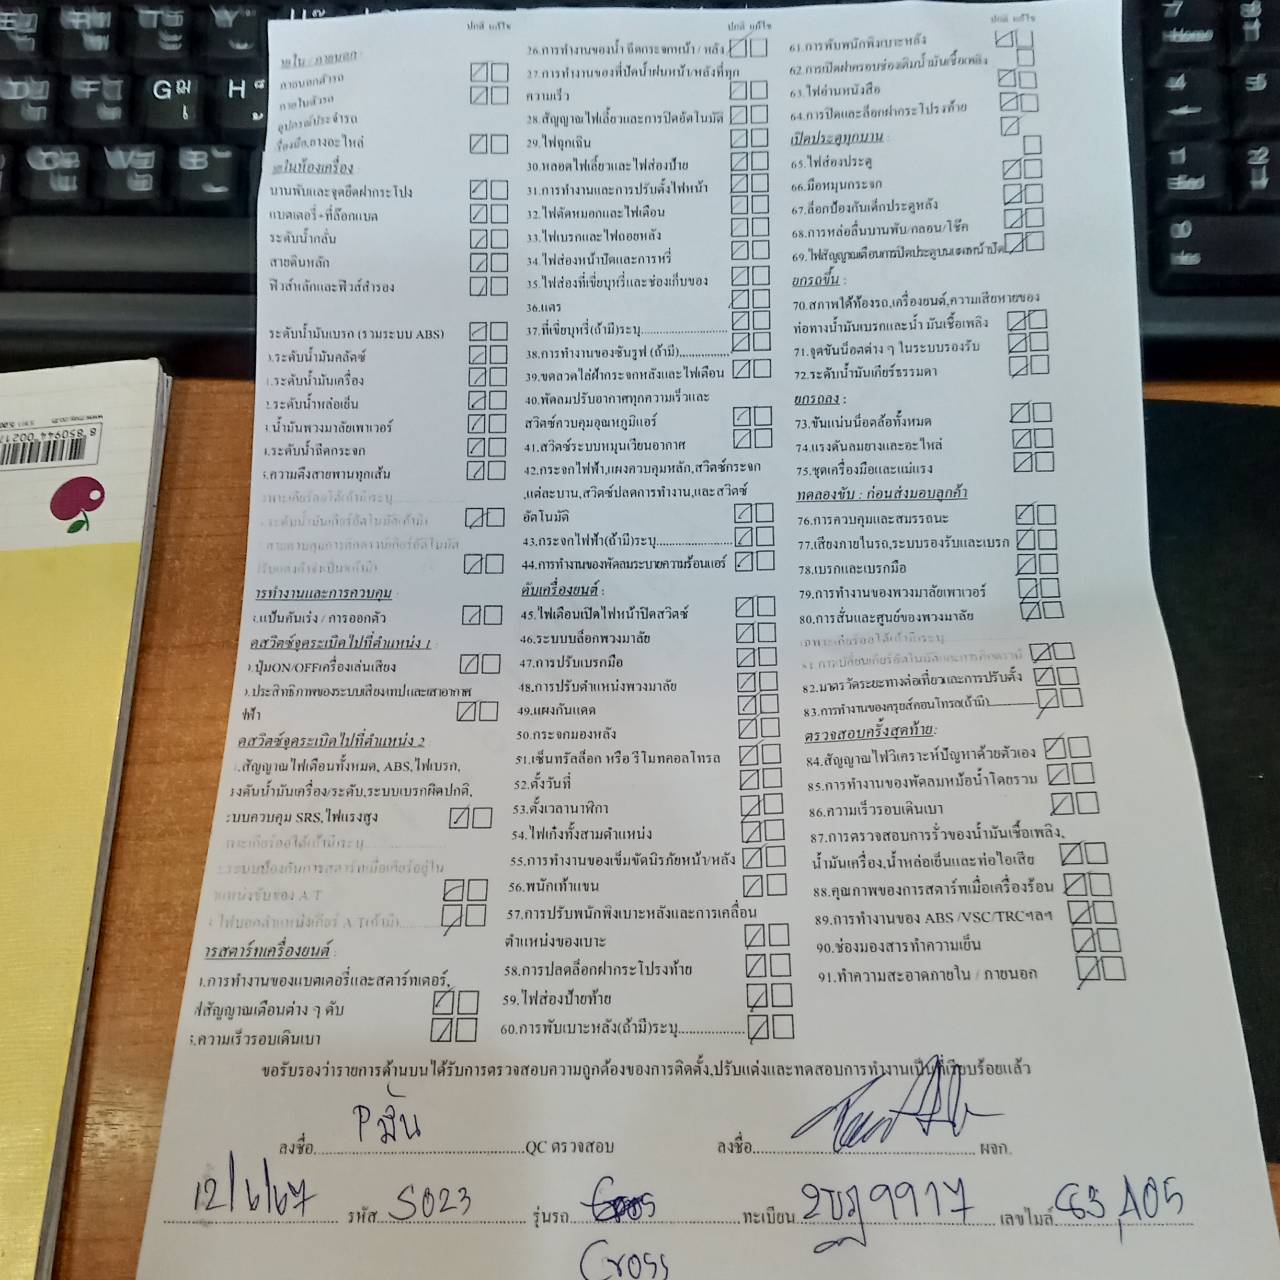 ปกติ แก้ไข
ภายใน / ภายนอก :
ภายนอกตัวรถ
ภายในตัวรถ
อุปกรณ์ประจำรถ
เครื่องมือ,ยางอะไหล่
ภายในห้องเครื่อง :
บานพับและจุดยึดฝากระโปง
แบตเตอรี่+ที่ล๊อกแบต
ระดับน้ำกลั่น
สายดินหลัก
ฟิวส์หลักและฟิวส์สำรอง
ระดับน้ำมันเบรก (รวมระบบ ABS)
.ระดับน้ำมันคลัตช์
.ระดับน้ำมันเครื่อง
.ระดับน้ำหล่อเย็น
.น้ำมันพวงมาลัยเพาเวอร์
.ระดับน้ำฉีดกระจก
.ความตึงสายพานทุกเส้น
เฉพาะเกียร์ออโต้(ถ้ามี)ระบุ
.ระดับน้ำมันเกียร์อัตโนมัติ(ถ้ามี)
.สายควบคุมการคิกดาวน์เกียร์อัตโนมัติ
(ปรับแต่งถ้าจำเป็น)(ถ้ามี)
การทำงานและการควบคุม
.แป้นคันเร่ง / การออกตัว
ดสวิตช์จุดระเบิดไปที่ตำแหน่ง 1 :
.ปุ่มON/OFFเครื่องเล่นเสียง
.ประสิทธิภาพของระบบเสียงเทปและเสาอากาศ
ไฟฟ้า
ดสวิตช์จุดระเบิดไปที่ตำแหน่ง 2
.สัญญาณไฟเตือนทั้งหมด, ABS,ไฟเบรก,
แรงดันน้ำมันเครื่อง/ระดับ,ระบบเบรกผิดปกติ,
ระบบควบคุม SRS,ไฟแรงสูง
เฉพาะเกียร์ออโต้(ถ้ามี)ระบุ
.ระบบป้องกันการสตาร์ทเมื่อเกียร์อยู่ใน
ตำแหน่งขับของ A/T
.ไฟบอกตำแหน่งเกียร์ A/T(ถ้ามี)
การสตาร์ทเครื่องยนต์ :
.การทำงานของแบตเตอรี่และสตาร์ทเตอร์,
ไฟสัญญาณเตือนต่าง ๆ ดับ
.ความเร็วรอบเดินเบา
ปกติ แก้ไข
26.การทำงานของน้ำ ฉีดกระจกหน้า / หลัง
27.การทำงานของที่ปัดน้ำฝนหน้า/หลังที่ทุก
ความเร็ว
28.สัญญาณไฟเลี้ยวและการปิดอัตโนมัติ
29.ไฟฉุกเฉิน
30.หลอดไฟเลี้ยวและไฟส่องป้าย
31.การทำงานและการปรับตั้งไฟหน้า
32.ไฟตัดหมอกและไฟเตือน
33.ไฟเบรกและไฟถอยหลัง
34.ไฟส่องหน้าปัดและการหรี่
35.ไฟส่องที่เขี่ยบุหรี่และช่องเก็บของ
36.แตร
37.ที่เขี่ยบุหรี่(ถ้ามี)ระบุ
38.การทำงานของซันรูฟ (ถ้ามี)
39.ขดลวดไล่ฝ้ากระจกหลังและไฟเตือน
40.พัดลมปรับอากาศทุกความเร็วและ
สวิตช์ควบคุมอุณหภูมิแอร์
41.สวิตช์ระบบหมุนเวียนอากาศ
42.กระจกไฟฟ้า,แผงควบคุมหลัก,สวิตช์กระจก
,แต่ละบาน,สวิตช์ปลดการทำงาน,และสวิตช์
อัตโนมัติ
43.กระจกไฟฟ้า(ถ้ามี)ระบุ
44.การทำงานของพัดลมระบายความร้อนแอร์
ดับเครื่องยนต์ :
45.ไฟเตือนเปิดไฟหน้าปิดสวิตช์
46.ระบบบล็อกพวงมาลัย
47.การปรับเบรกมือ
48.การปรับตำแหน่งพวงมาลัย
49.แผงกันแดด
50.กระจกมองหลัง
51.เซ็นทรัลล็อก หรือ รีโมทคอลโทรล
52.ตั้งวันที่
53.ตั้งเวลานาฬิกา
54.ไฟเก๋งทั้งสามตำแหน่ง
55.การทำงานของเข็มขัดนิรภัยหน้า/หลัง
56.พนักเท้าแขน
57.การปรับพนักพิงเบาะหลังและการเคลื่อน
ตำแหน่งของเบาะ
58.การปลดล็อกฝากระโปรงท้าย
59.ไฟส่องป้ายท้าย
60.การพับเบาะหลัง(ถ้ามี)ระบุ
ปกติ แก้ไข
61.การพับพนักพิงเบาะหลัง
62.การเปิดฝาครอบช่องเติมน้ำมันเชื้อเพลิง
63.ไฟอ่านหนังสือ
64.การปิดและล็อกฝากระโปรงท้าย
เปิดประตูทุกบาน :
65.ไฟส่องประตู
66.มือหมุนกระจก
67.ล็อกป้องกันเด็กประตูหลัง
68.การหล่อลื่นบานพับ/กลอน/โช๊ค
69.ไฟสัญญาณเตือนการปิดประตูบนแผงหน้าปัด
ยกรถขึ้น :
70.สภาพใต้ท้องรถ,เครื่องยนต์,ความเสียหายของ
ท่อทางน้ำมันเบรกและน้ำ มันเชื้อเพลิง
71.จุดขันน็อตต่าง ๆ ในระบบรองรับ
72.ระดับน้ำมันเกียร์ธรรมดา
ยกรถลง :
73.ขันแน่นน็อตล้อทั้งหมด
74.แรงดันลมยางและอะไหล่
75.ชุดเครื่องมือและแม่แรง
ทดลองขับ : ก่อนส่งมอบลูกค้า
76.การควบคุมและสมรรถนะ
77.เสียงภายในรถ,ระบบรองรับและเบรก
78.เบรกและเบรกมือ
79.การทำงานของพวงมาลัยเพาเวอร์
80.การสั่นและศูนย์ของพวงมาลัย
เฉพาะเกียร์ออโต้(ถ้ามี)ระบุ
81.การเปลี่ยนเกียร์อัตโนมัติและการคิกดาวน์
82.มาตรวัดระยะทางต่อเที่ยวและการปรับตั้ง
83.การทำงานของครุยส์คอนโทรล(ถ้ามี)
ตรวจสอบครั้งสุดท้าย:
84.สัญญาณไฟวิเคราะห์ปัญหาด้วยตัวเอง
85.การทำงานของพัดลมหม้อน้ำโดยรวม
86.ความเร็วรอบเดินเบา
87.การตรวจสอบการรั่วของน้ำมันเชื้อเพลิง,
น้ำมันเครื่อง,น้ำหล่อเย็นและท่อไอเสีย
88.คุณภาพของการสตาร์ทเมื่อเครื่องร้อน
89.การทำงานของ ABS /VSC/TRCฯลฯ
90.ช่องมองสารทำความเย็น
91.ทำความสะอาดภายใน / ภายนอก
ขอรับรองว่ารายการด้านบนได้รับการตรวจสอบความถูกต้องของการติดตั้ง,ปรับแต่งและทดสอบการทำงานเป็นที่เรียบร้อยแล้ว
ลงชื่อ P มั่น QC ตรวจสอบ ลงชื่อ ผจก.
12/6/67 รหัส S023 รุ่นรถ ทะเบียน 2ขฎ9917 เลขไมล์ 83,105
Cross